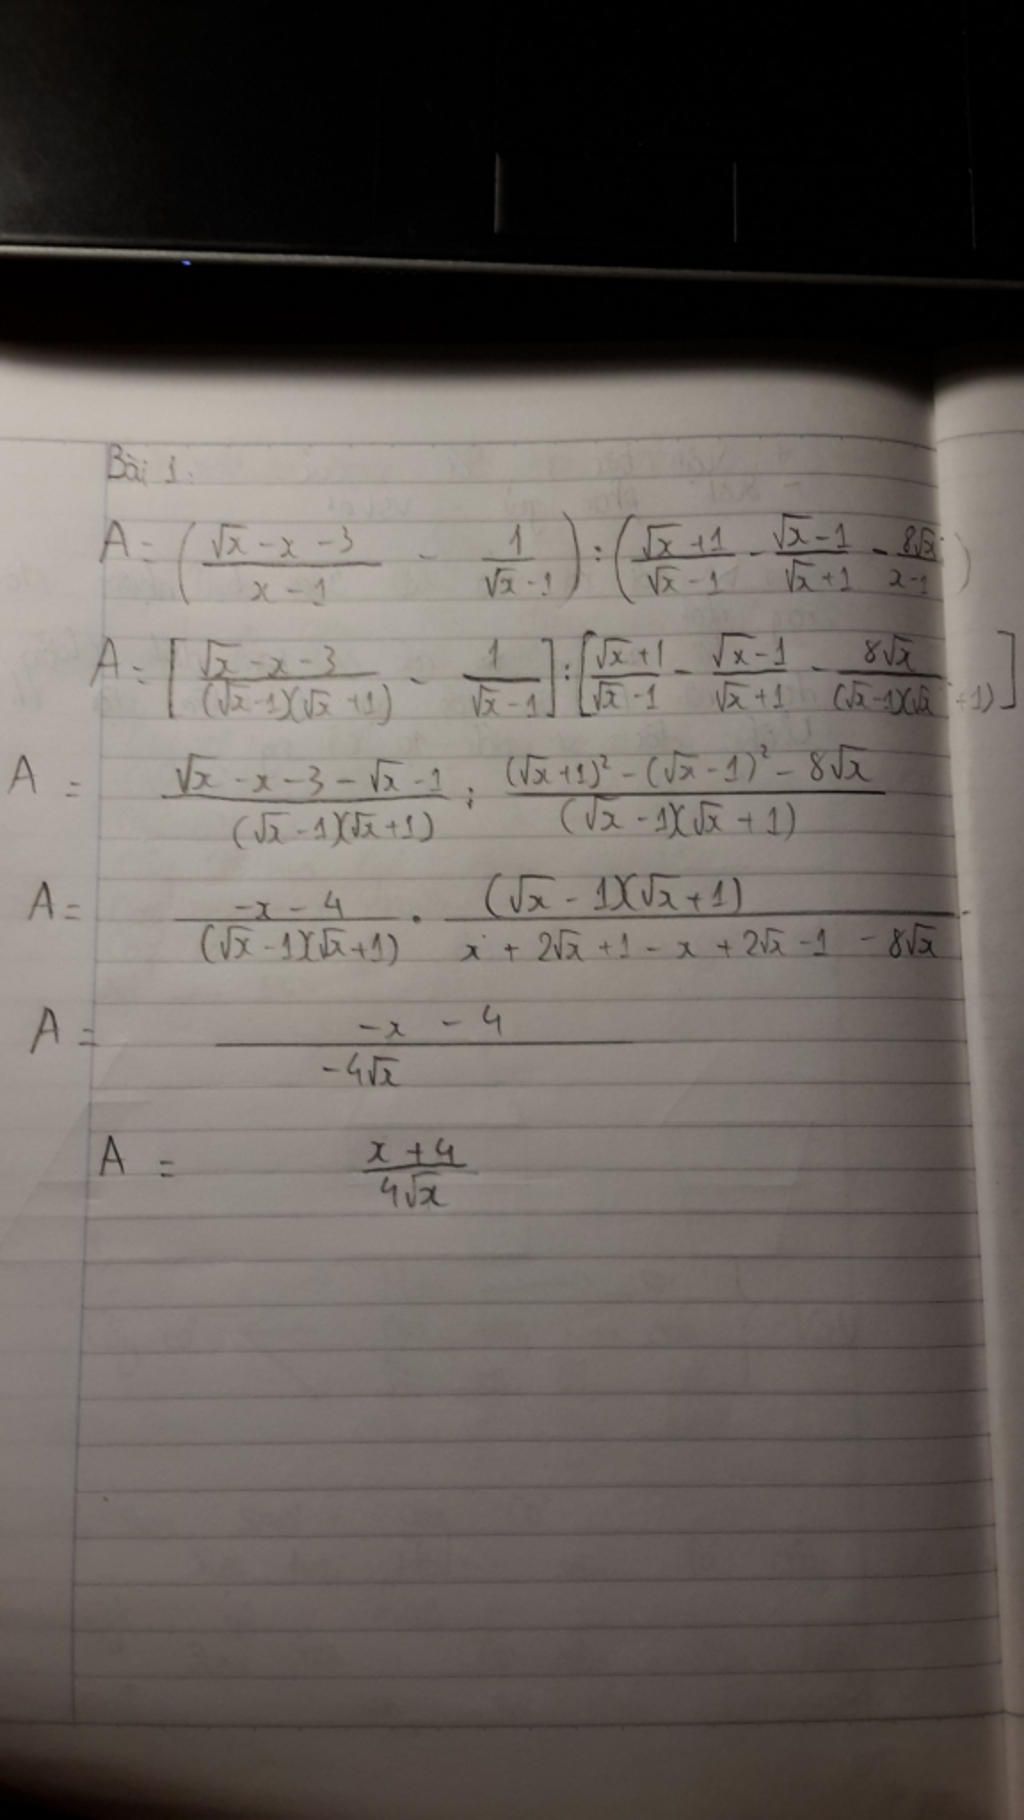 Bài 1:
A = ( (√x - x - 3)/(x - 1) - 1/(√x - 1) ) : ( (√x + 1)/(√x - 1) - (√x - 1)/(√x + 1) - 8√x/(x - 1) )
A = [ (√x - x - 3)/((√x - 1)(√x + 1)) - 1/(√x - 1) ] : [ (√x + 1)/(√x - 1) - (√x - 1)/(√x + 1) - 8√x/((√x - 1)(√x + 1)) ]
A = (√x - x - 3 - √x - 1)/((√x - 1)(√x + 1)) : ((√x + 1)² - (√x - 1)² - 8√x)/((√x - 1)(√x + 1))
A = (-x - 4)/((√x - 1)(√x + 1)) · ((√x - 1)(√x + 1))/(x + 2√x + 1 - x + 2√x - 1 - 8√x)
A = (-x - 4)/(-4√x)
A = (x + 4)/(4√x)